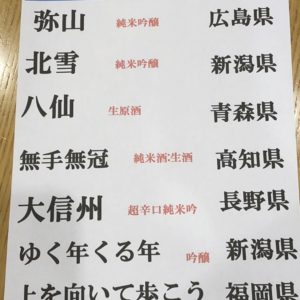 弥山 純米吟醸 広島県
北雪 純米吟醸 新潟県
八仙 生原酒 青森県
無手無冠 純米酒:生酒 高知県
大信州 超辛口純米吟 長野県
ゆく年くる年 吟醸 新潟県
上を向いて歩こう 福岡県